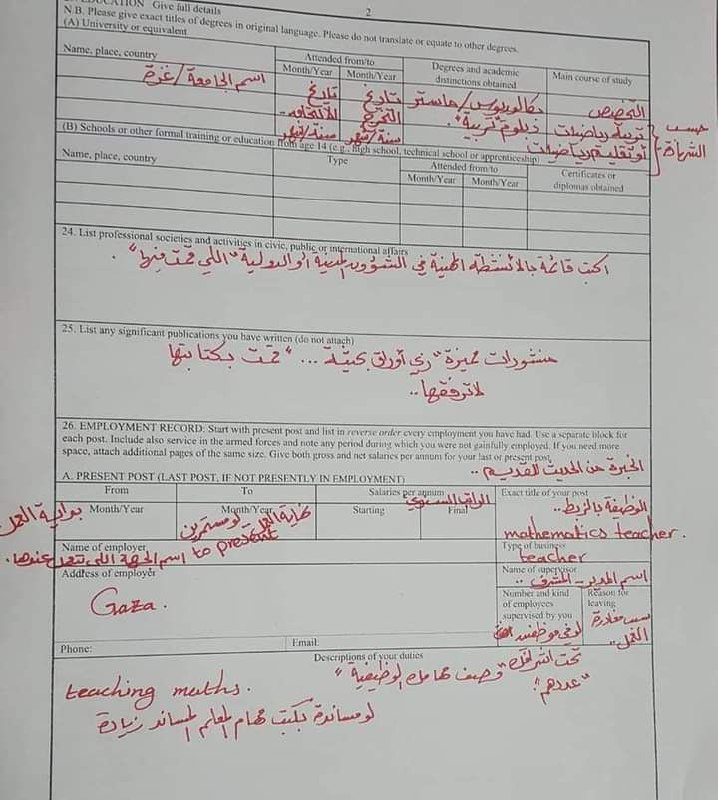 EDUCATION Give full details
2
N.B. Please give exact titles of degrees in original language. Please do not translate or equate to other degrees.
(A) University or equivalent
Name, place, country
Attended from/to
Month/Year Month/Year
Degrees and academic distinctions obtained
Main course of study
اسم الجامعة / غزة
تاريخ
تاريخ التخرج
سنة/شهر
سنة/شهر
بكالوريوس/ماستر
دبلوم "تربية".
التخصص
تربية رياضيات
أو تعليم رياضيات
حسب الشهادة
(B) Schools or other formal training or education from age 14 (e.g., high school, technical school or apprenticeship)
Name, place, country
Type
Attended from/to
Month/Year Month/Year
Certificates or diplomas obtained
24. List professional societies and activities in civic, public or international affairs
اكتب قائمة بالأنشطة المهنية في الشؤون المدنية أو الدولية "اللي قمت فيها".
25. List any significant publications you have written (do not attach)
منشورات مميزة "زي أوراق بحثية ..." قمت بكتابتها
لا ترفقها..
26. EMPLOYMENT RECORD: Start with present post and list in reverse order every employment you have had. Use a separate block for
each post. Include also service in the armed forces and note any period during which you were not gainfully employed. If you need more
space, attach additional pages of the same size. Give both gross and net salaries per annum for your last or present post.
الخبرة من الحديث للقديم..
A. PRESENT POST (LAST POST, IF NOT PRESENTLY IN EMPLOYMENT)
From
To
Salaries per annum
Exact title of your post
الراتب السنوي
Month/Year
Month/Year
Starting
Final
بداية العمل
نهاية العمل لو مستمرين
to present
الوظيفة بالزبط..
mathematics teacher.
Name of employer
اسم الجهة اللي بتعمل عندها.
Type of business
teacher
Address of employer
Gaza.
Name of supervisor
اسم المدير - المشرف..
Number and kind of employees supervised by you
لو في موظفين
تحت اشرافك
"عددهم"
Reason for leaving
سبب مغادرة العمل..
Phone:
Email:
Descriptions of your duties
"وصف مهامك الوظيفية"
teaching maths.
لو مساندة بكتب مهام المعلم المساند زيادة